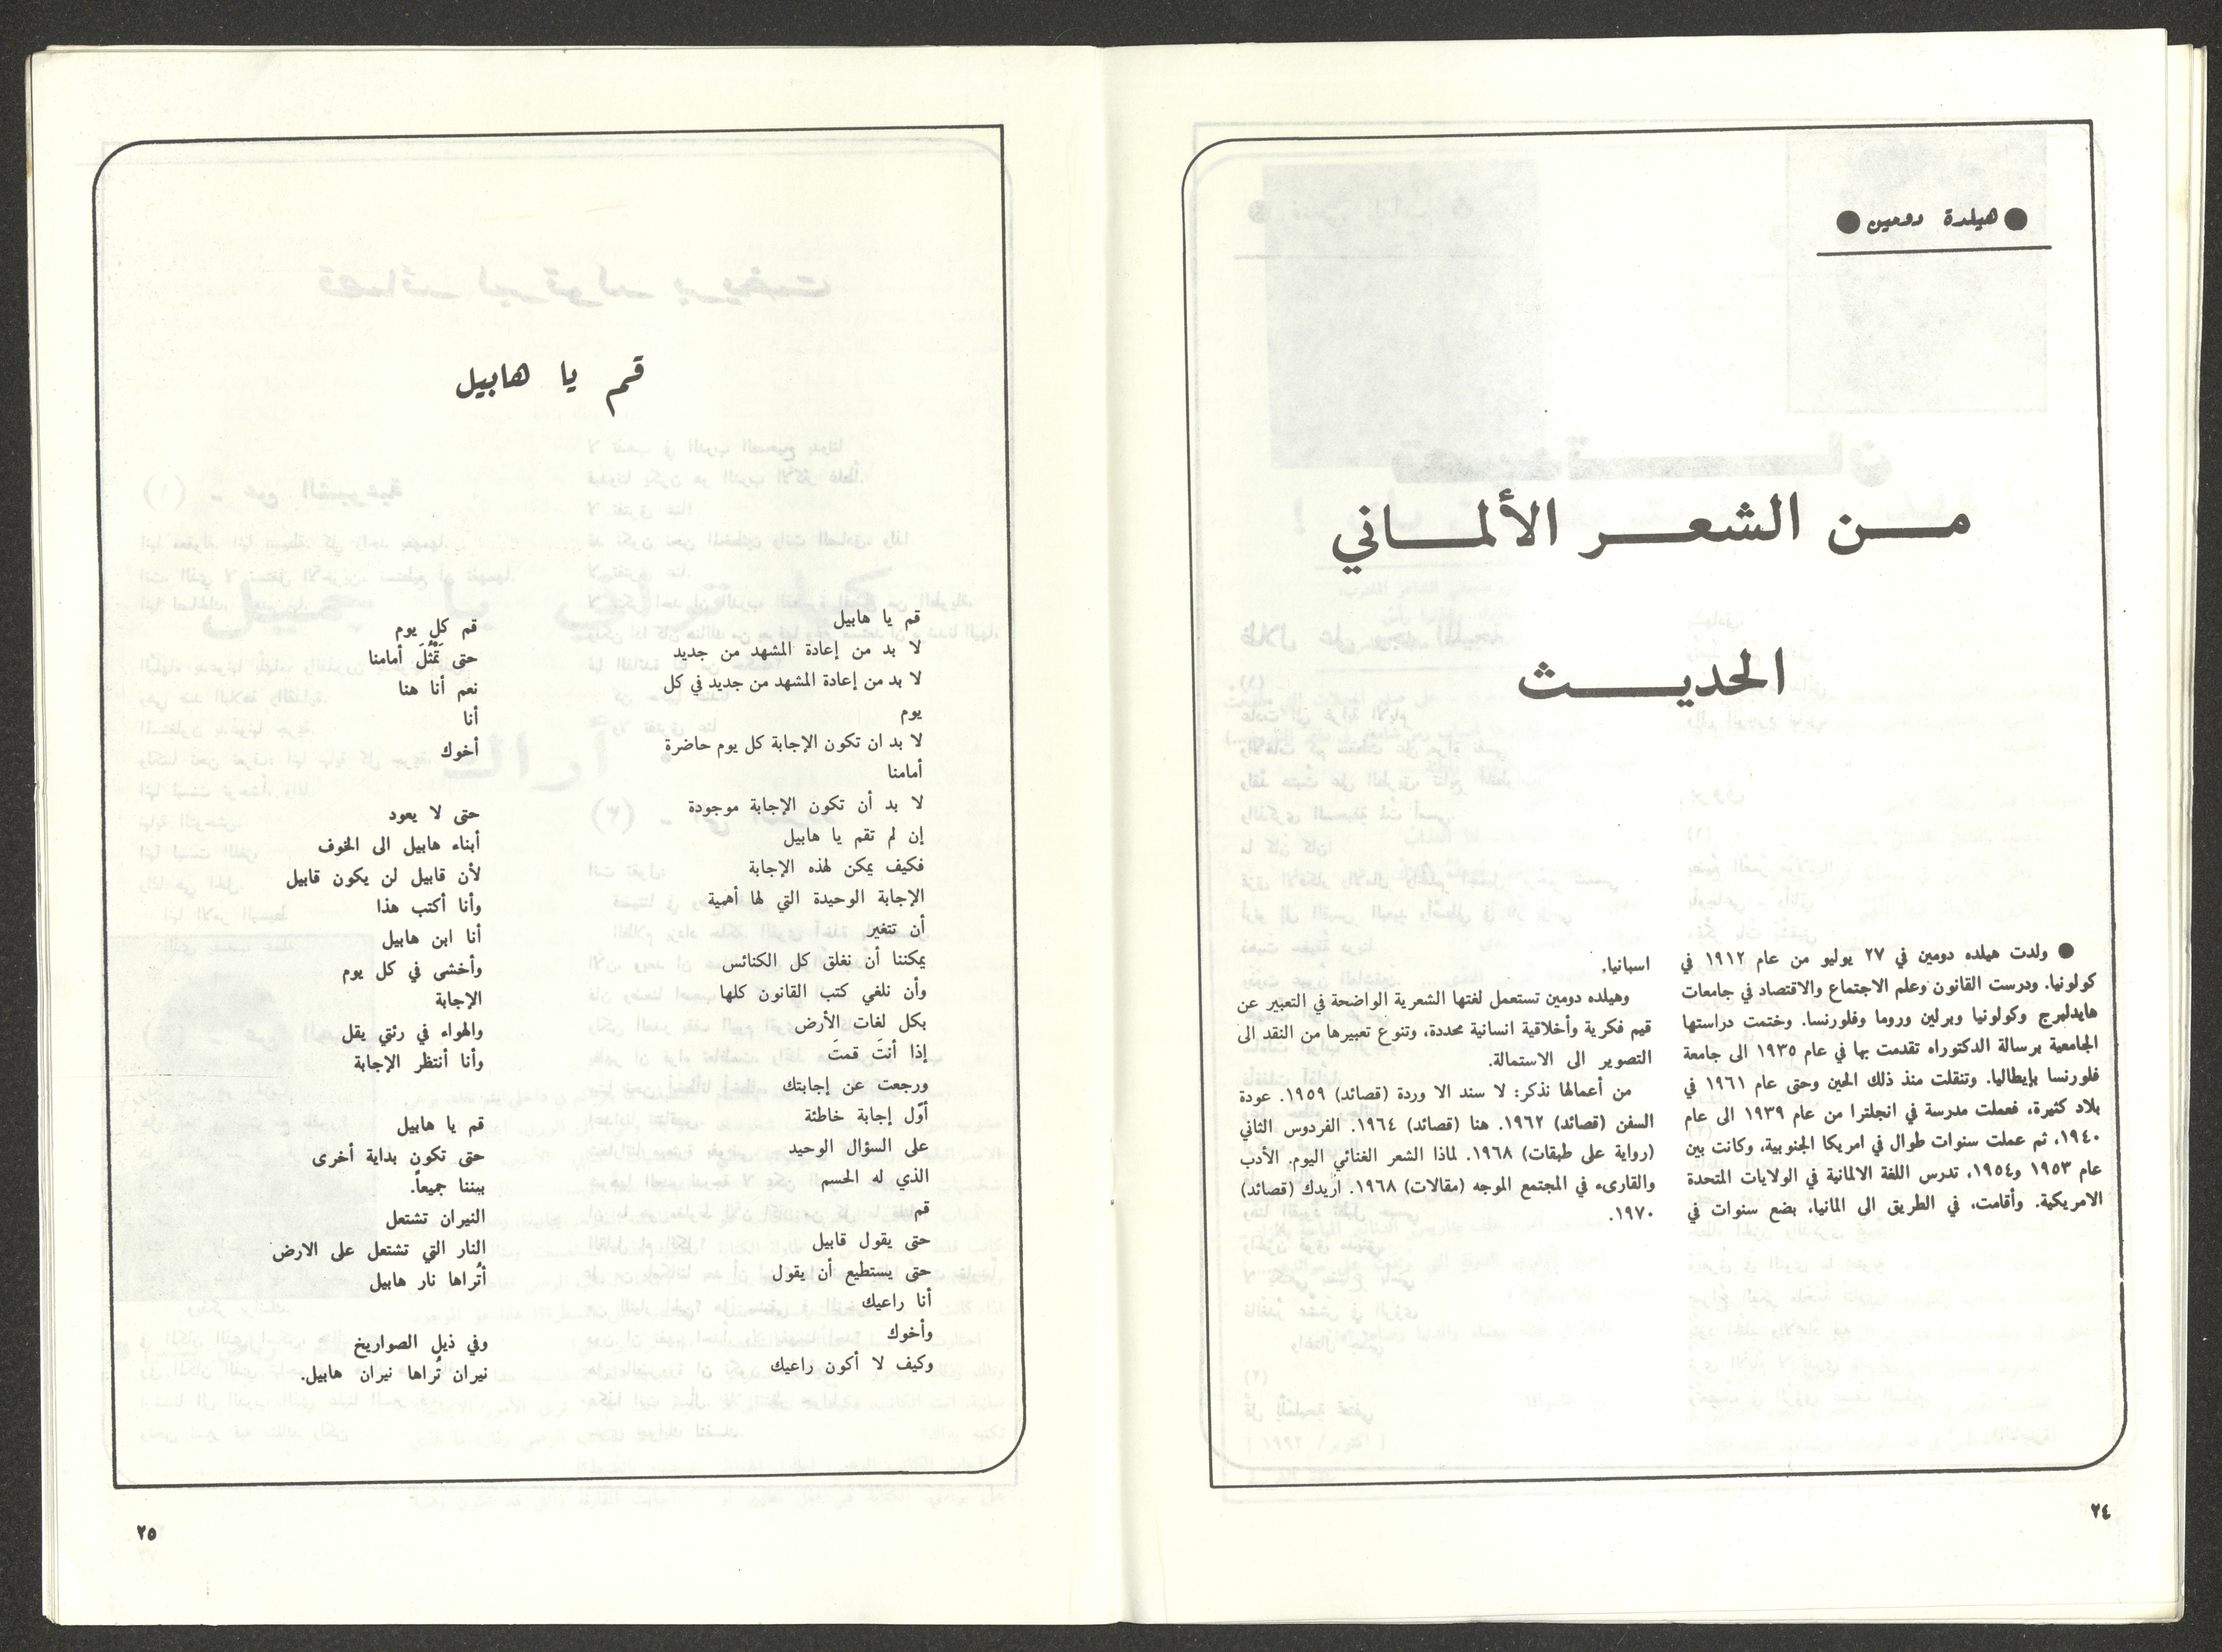 ● هيلدة دومين ●
من الشعر الألماني
الحديث
● ولدت هيلده دومين في ٢٧ يوليو من عام ١٩١٢ في
كولونيا. ودرست القانون وعلم الاجتماع والاقتصاد في جامعات
هايدلبرج وكولونيا وبرلين وروما وفلورنسا. وختمت دراستها
الجامعية برسالة الدكتوراه تقدمت بها في عام ١٩٣٥ الى جامعة
فلورنسا بإيطاليا. وتنقلت منذ ذلك الحين وحتى عام ١٩٦١ في
بلاد كثيرة، فعملت مدرسة في انجلترا من عام ١٩٣٩ الى عام
١٩٤٠، ثم عملت سنوات طوال في امريكا الجنوبية، وكانت بين
عام ١٩٥٣ و١٩٥٤، تدرس اللغة الالمانية في الولايات المتحدة
الامريكية. وأقامت، في الطريق الى المانيا، بضع سنوات في
اسبانيا.
وهيلده دومين تستعمل لغتها الشعرية الواضحة في التعبير عن
قيم فكرية وأخلاقية انسانية محددة، وتنوع تعبيرها من النقد الى
التصوير الى الاستمالة.
من أعمالها نذكر: لا سند الا وردة (قصائد) ١٩٥٩. عودة
السفن (قصائد) ١٩٦٢. هنا (قصائد) ١٩٦٤. الفردوس الثاني
(رواية على طبقات) ١٩٦٨. لماذا الشعر الغنائي اليوم. الأدب
والقارىء في المجتمع الموجه (مقالات) ١٩٦٨. اريدك (قصائد)
١٩٧٠.
٢٤
قم يا هابيل
قم يا هابيل
لا بد من إعادة المشهد من جديد
لا بد من إعادة المشهد من جديد في كل
يوم
لا بد ان تكون الإجابة كل يوم حاضرة
أمامنا
لا بد أن تكون الإجابة موجودة
إن لم تقم يا هابيل
فكيف يمكن لهذه الإجابة
الإجابة الوحيدة التي لها أهمية
أن تتغير
يمكننا أن نغلق كل الكنائس
وأن نلغي كتب القانون كلها
بكل لغات الأرض
إذا أنتَ قمتَ
ورجعت عن إجابتك
أوّل إجابة خاطئة
على السؤال الوحيد
الذي له الحسم
قم
حتى يقول قابيل
حتى يستطيع أن يقول
أنا راعيك
وأخوك
وكيف لا أكون راعيك
قم كل يوم
حتى تَمْثُلَ أمامنا
نعم أنا هنا
أنا
أخوك
حتى لا يعود
أبناء هابيل الى الخوف
لأن قابيل لن يكون قابيل
وأنا أكتب هذا
أنا ابن هابيل
وأخشى في كل يوم
الإجابة
والهواء في رئتي يقل
وأنا أنتظر الإجابة
قم يا هابيل
حتى تكون بداية أخرى
بيننا جميعاً.
النيران تشتعل
النار التي تشتعل على الارض
أتُراها نار هابيل
وفي ذيل الصواريخ
نيران تُراها نيران هابيل.
٢٥